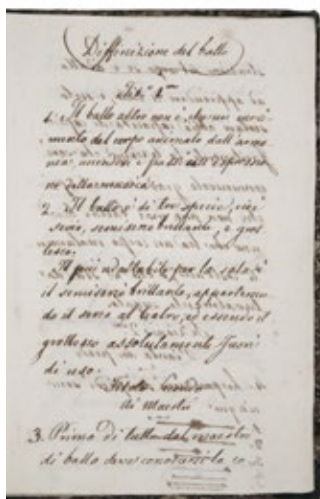 Diffinizione del ballo
1. Il ballo altro non è, che un movi-
mento del corpo animato dall'armo-
nia
ne della musica.
2. Il ballo è di tre specie, cioè
serio, semiserio brillante, e grot-
tesco.
Il più adattabile per la sala è
il semiserio brillante, appartenen-
do il serio al teatro, ed essendo il
grottesco assolutamente fuori
di uso.
Titolo Secondo
Ai Maestri
3. Prima di tutto dal maestro
di ballo deve conoscersi la co